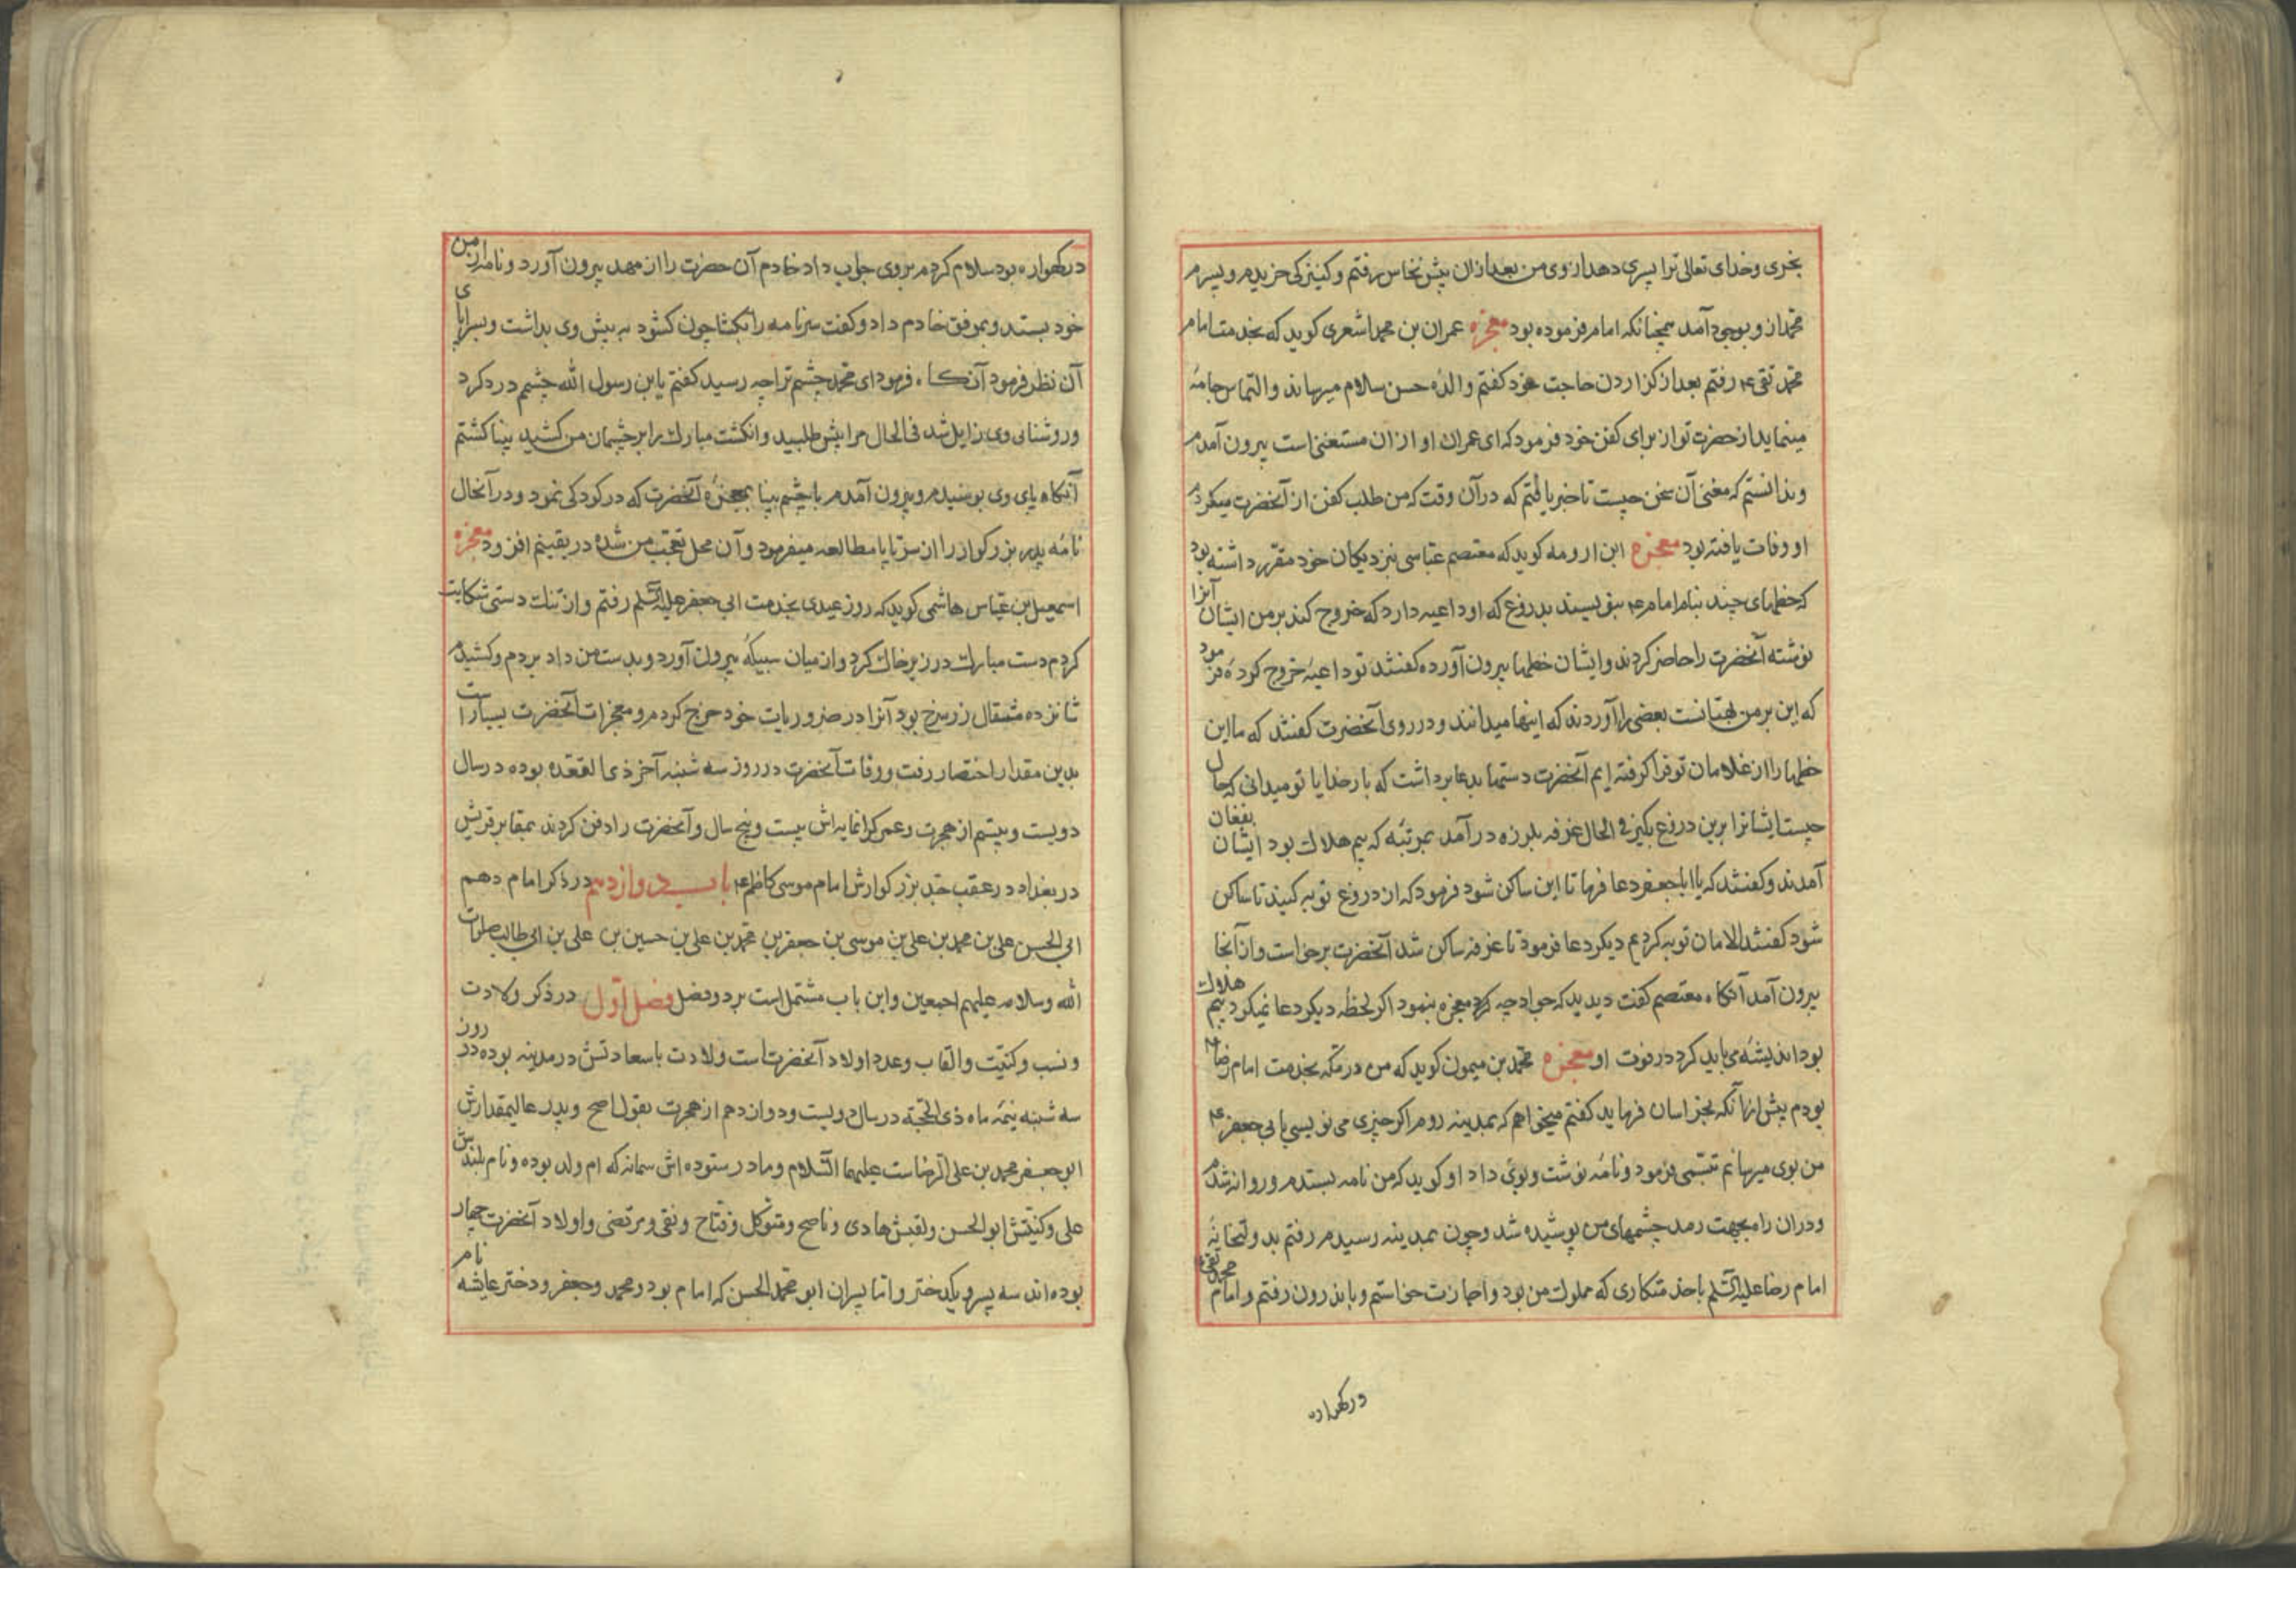 بخری وخدای تعالی ترا پسری دهد ازوی من بعد ازان پیش نخاس رفتم و کنیزکی خریدم و پسرم
محمد ازو بوجود آمد همچنانکه امام فرموده بود معجزه عمران بن محمد اشعری کوید که بخدمت امام
محمد تقی ع رفتم بعد از کزاردن حاجت خود کفتم والدهٔ حسن سلام میرساند والتماس جامهٔ
مینماید از حضرت تو از برای کفن خود فرمود که ای عمران او ازان مستغنی است بیرون آمدم
وندانستم که معنی آن سخن چیست تا خبر یافتم که درآن وقت که من طلب کفن از آنحضرت میکردم
او وفات یافته بود معجزه ابن ارومه کوید که معتصم عباسی نزدیکان خود مقرر داشته بود
که خطهای چند بنام امام ع بنویسند بدروغ که او داعیه دارد که خروج کند برمن ایشان آنرا
نوشته آنحضرت را حاضر کردند وایشان خطها بیرون آورده کفتند تو داعیهٔ خروج کودهٔ فرمود
که این برمن بهتانست بعضی را آوردند که اینها میدانند و درروی آنحضرت کفتند که ما این
خطها را از غلامان تو فرا کرفته ایم آنحضرت دستها بدعا برداشت که بار خدایا تو میدانی که حال
چیست ایشانرا برین دروغ بکیر فی الحال غرفه بلرزه درآمد بمرتبهٔ که بیم هلاک بود ایشان بفغان
آمدند وکفتند که یا اباجعفر دعا فرما تا این ساکن شود فرمود که از دروغ توبه کنید تا ساکن
شود کفتند الامان توبه کردیم دیکر دعا فرمود تا غرفه ساکن شد آنحضرت برخاست وازآنجا
بیرون آمد آنکاه معتصم کفت دیدید که جواد چه کرد معجزه بنمود اکر لحظهٔ دیکر دعا نمیکرد بیم هلاک
بود اندیشهٔ می باید کرد در فوت او معجزه محمد بن میمون کوید که من در مکه بخدمت امام رضا ع
بودم پیش ازآنکه بخراسان فرماید کفتم میخواهم که بمدینه روم اکر چیزی می نویسی بابی جعفر ع
من بوی میرسانم تبسمی فرمود ونامهٔ نوشت وبوی داد او کوید که من نامه بستدم وروانه شدم
ودران راه بجهت رمد چشمهای من پوشیده شد وچون بمدینه رسیدم رفتم بدولتخانهٔ
امام رضا علیه السلم باخذ متکاری که مملوک من بود واجازت خواستم وباندرون رفتم وامام محمد تقی ع
درکهواره
درکهواره بود سلام کردم بروی جواب داد خادم آن حضرت را از مهد بیرون آورد ونامه از من
خود بستد وبموفق خادم داد وکفت سرنامه را بکشا چون کشود به پیش وی بداشت وبسراپای
آن نظر فرمود آنکاه فرمود ای محمد چشم ترا چه رسید کفتم یابن رسول الله چشم درد کرد
وروشنائی وی زایل شد فی الحال مرا پیش طلبید وانکشت مبارک را برچشمان من کشید بینا کشتم
آنکاه پای وی بوسیدم وبیرون آمدم با چشم بینا بمعجزهٔ آنحضرت که در کودکی نمود ودرآنحال
نامهٔ پدر بزرکوار را از سر تا پا مطالعه میفرمود وآن محل تعجب من شده در یقینم افزود معجزه
اسمعیل بن عباس هاشمی کوید که روز عیدی بخدمت ابی جعفر علیه السلم رفتم واز تنک دستی شکایت
کردم دست مبارک در زیر خاک کرد واز میان سبیکهٔ بیرون آورد وبدست من داد بردم وکشیدم
شانزده مثقال زر سرخ بود آنرا در ضروریات خود خرج کردم ومعجزات آنحضرت بسیار است
بدین مقدار اختصار رفت ووفات آنحضرت در روز سه شنبه آخر ذی القعده بوده در سال
دویست وبیستم از هجرت وعمر کرانمایه اش بیست وپنج سال وآنحضرت را دفن کردند بمقابر قریش
در بغداد در عقب جد بزرکوارش امام موسی کاظم ع باب دوازدهم در ذکر امام دهم
ابی الحسن علی بن محمد بن علی بن موسی بن جعفر بن محمد بن علی بن حسین بن علی بن ابی طالب صلوات
الله وسلامه علیهم اجمعین واین باب مشتمل است بر دو فصل فصل اول در ذکر ولادت
ونسب وکنیت والقاب وعدد اولاد آنحضرت است ولادت باسعادتش در مدینه بوده در روز
سه شنبه نیمهٔ ماه ذی الحجة در سال دویست ودوازدهم از هجرت بقول اصح وپدر عالیمقدارش
ابو جعفر محمد بن علی الرضاست علیهما السلام ومادر ستوده اش سمانه که ام ولد بوده ونام بلندش
علی وکنیتش ابوالحسن ولقبش هادی وناصح ومتوکل وفتاح ونقی ومرتضی واولاد آنحضرت چهار
بوده اند سه پسر ویکدختر واما پسران ابو محمد الحسن که امام بود ومحمد وجعفر ودختر عایشه نام